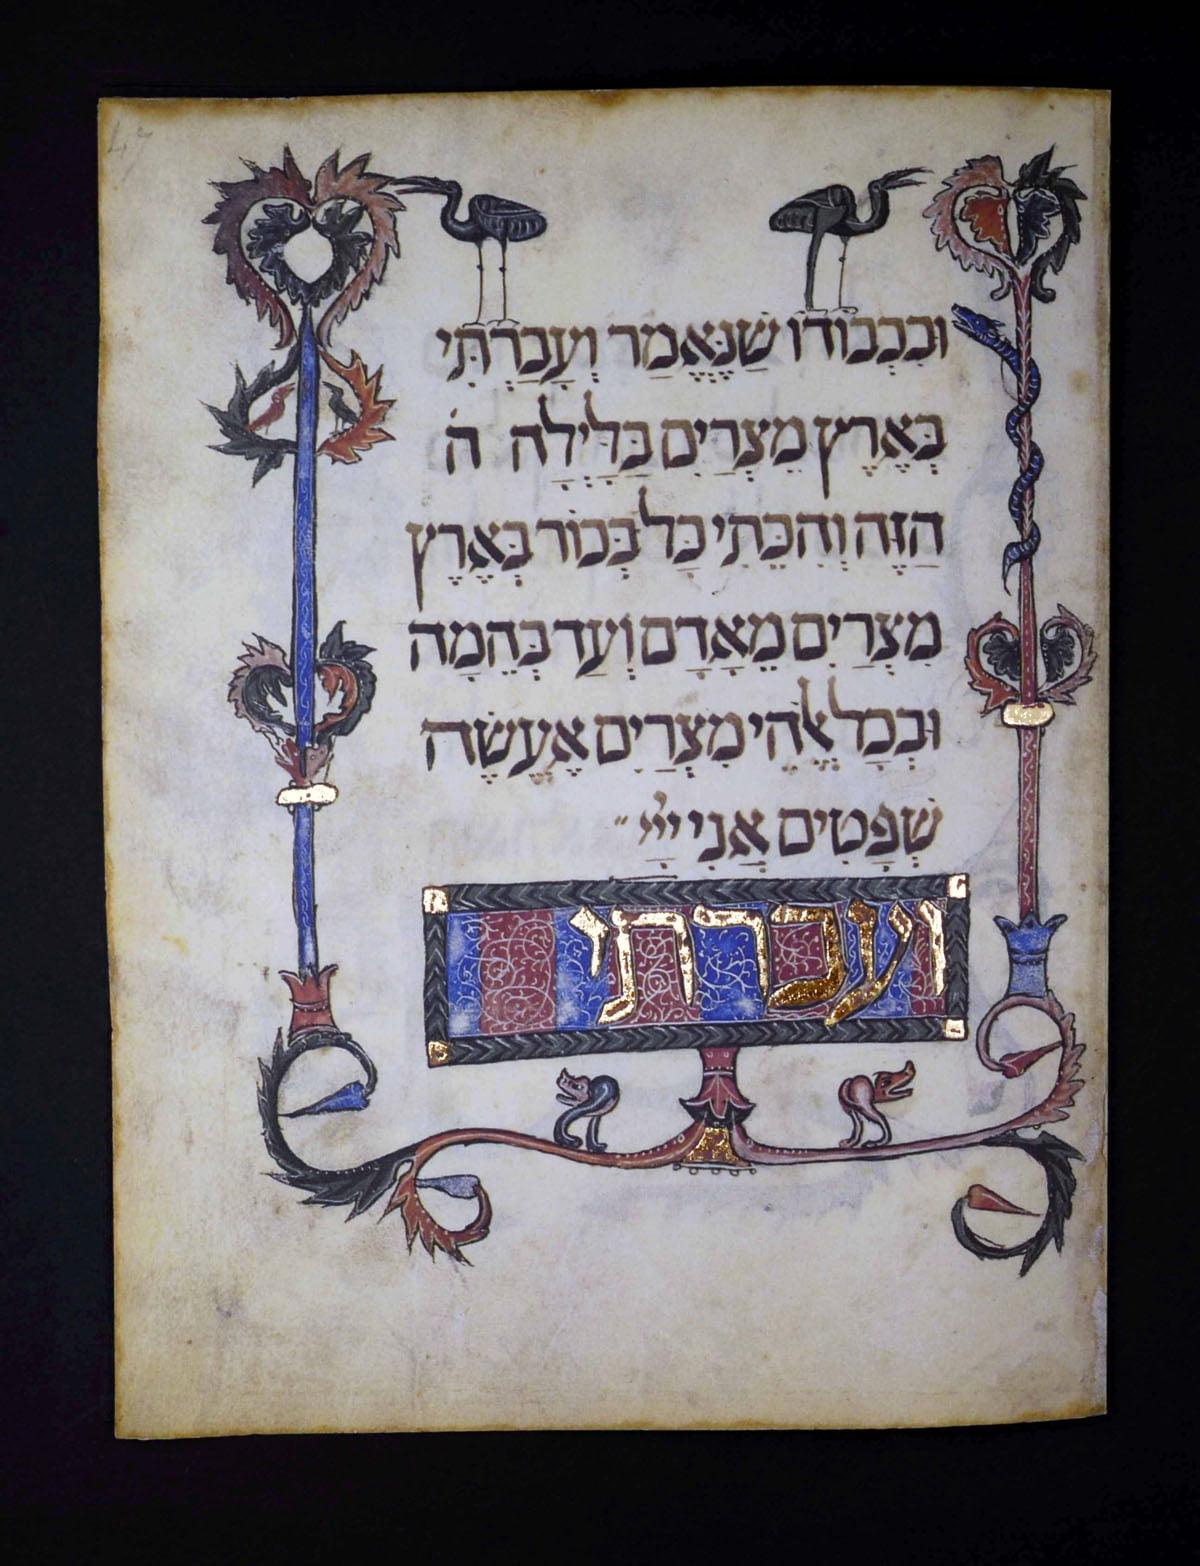 47
וּבִכְבוֹדוֹ שֶׁנֶּאֱמַר וְעָבַרְתִּי
בְּאֶרֶץ מִצְרַיִם בַּלַּיְלָה ה
הַזֶּה וְהִכֵּתִי כָּל בְּכוֹר בְּאֶרֶץ
מִצְרַיִם מֵאָדָם וְעַד בְּהֵמָה
וּבְכָל אֱלֹהֵי מִצְרַיִם אֶעֱשֶׂה
שְׁפָטִים אֲנִי יְיָ
ועברתי